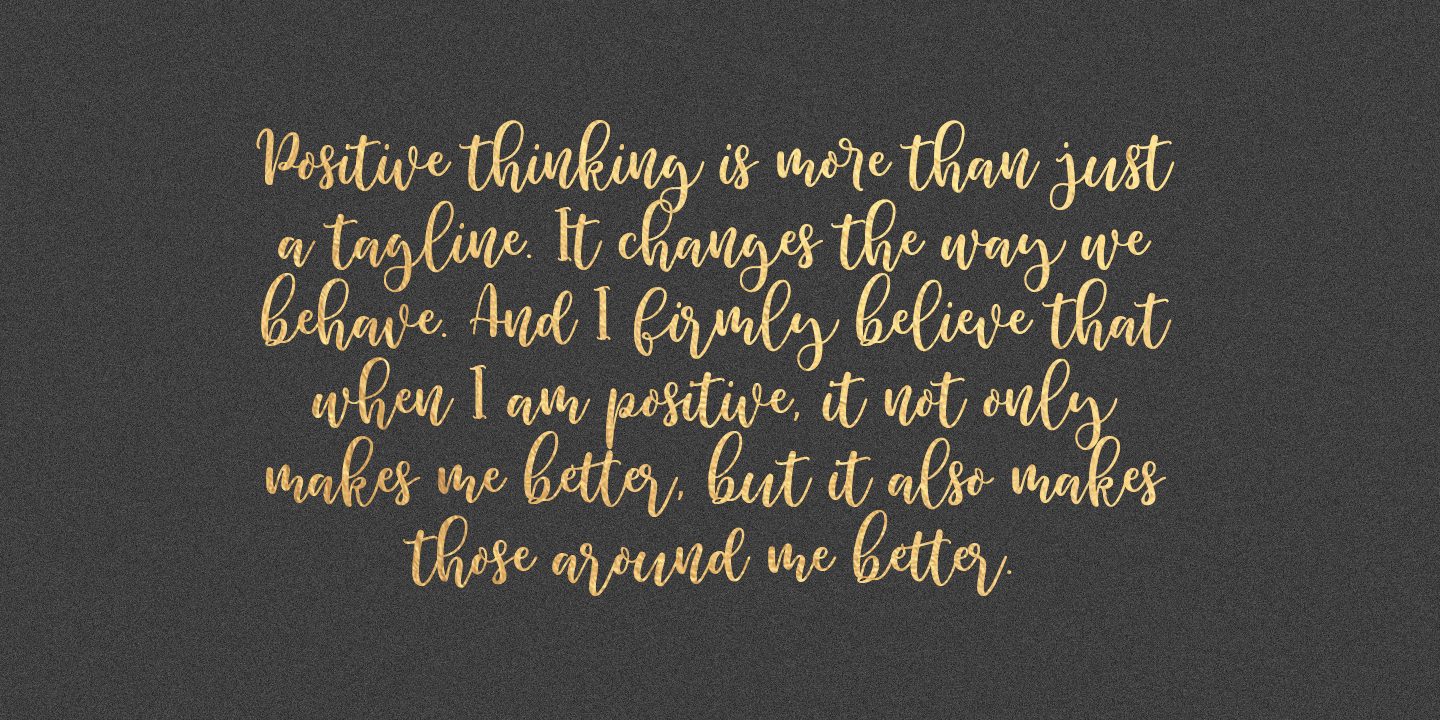 Positive thinking is more than just
a tagline. It changes the way we
behave. And I firmly believe that
when I am positive, it not only
makes me better, but it also makes
those around me better.